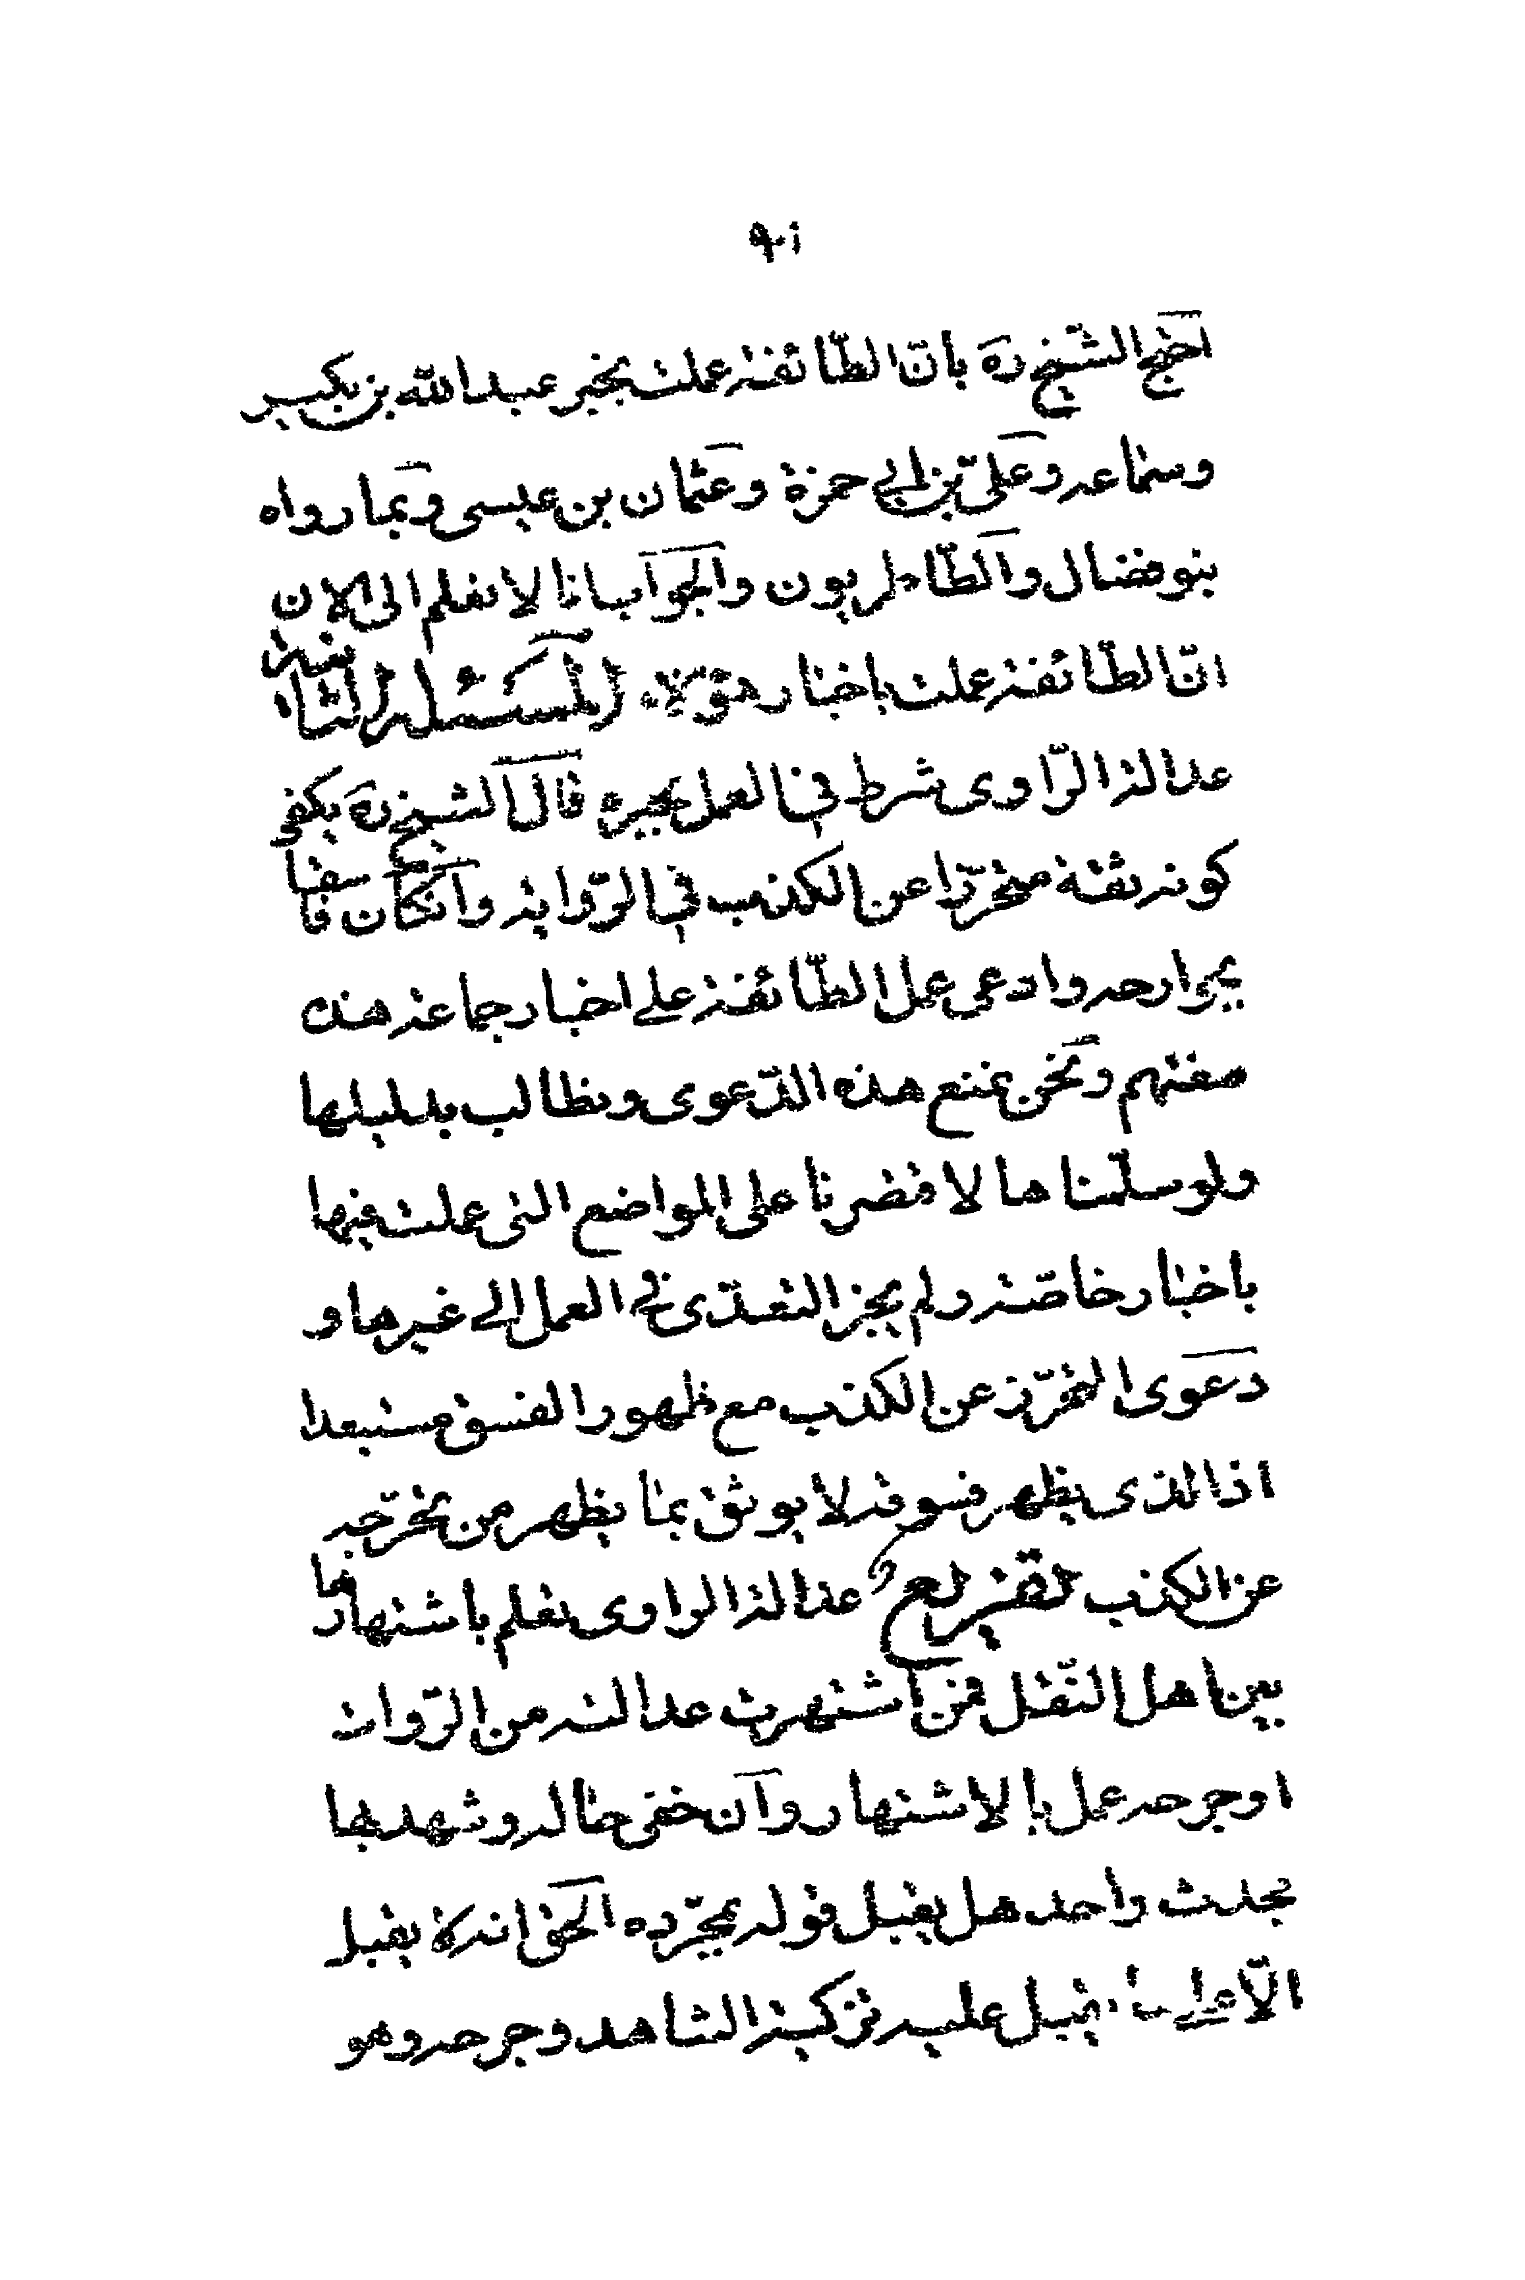 ٩٠١
احتج الشيخ ره بان الطائفة عملت بخبر عبد الله بن بكير
وسماعه وعلى بن ابي حمزة وعثمان بن عيسى وبما رواه
بنو فضال والطاطريون والجواب انا لا نعلم الى الان
ان الطائفة عملت باخبار هؤلاء المسئلة الثانية
عدالة الراوى شرط في العمل بخبره قال الشيخ ره يكفى
كونه ثقة متحرزا عن الكذب في الرواية وان كان فاسقا
بجوارحه وادعى عمل الطائفة على اخبار جماعة هذه
صفتهم ونحن نمنع هذه الدعوى ونطالب بدليلها
ولو سلمناها لاقتصرنا على المواضع التى عملت فيها
باخبار خاصة ولم يجز التعدى في العمل الى غيرها و
دعوى التحرز عن الكذب مع ظهور الفسق مستبعد
اذ الذى يظهر فسوقه لا يوثق بما يظهر من تحرجه
عن الكذب تفريع عدالة الراوى تعلم باشتهارها
بين اهل النقل فمن اشتهرت عدالته من الرواة
او جرحه عمل بالاشتهار وان خفى حاله وشهد بها
محدث واحد هل يقبل قوله بمجرده الحق انه لا يقبل
الا على ما يقبل عليه تزكية الشاهد وجرحه وهو